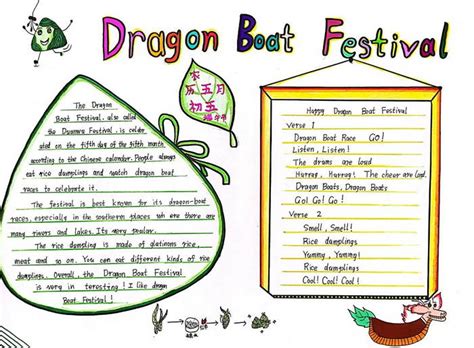 Dragon Boat Festival
农
历五月
初五
The Dragon
Boat Festival, also called
the Duanwu Festival, is celebr
ated on the fifth day of the fifth month
according to the Chinese calendar. People always
eat rice dumplings and watch dragon boat
races to celebrate it.
The festival is best known for its dragon-boat
races, especially in the southern places where there are
many rivers and lakes. It's very popular.
The rice dumpling is made of glutinous rice,
meat and so on. You can eat different kinds of rice
dumplings. Overall, the Dragon Boat Festival
is very in teresting! I like dragon
Boat Festival!
Happy Dragon Boat Festival
Verse 1
Dragon Boat Race GO!
Listen, Listen!
The drums are loud
Hurray, Hurray! The cheer are loud.
Dragon Boats, Dragon Boats
Go! Go! Go!
Verse 2
Smell, Smell!
Rice dumplings
Yummy, Yummy!
Rice dumplings
Cool! Cool! Cool!